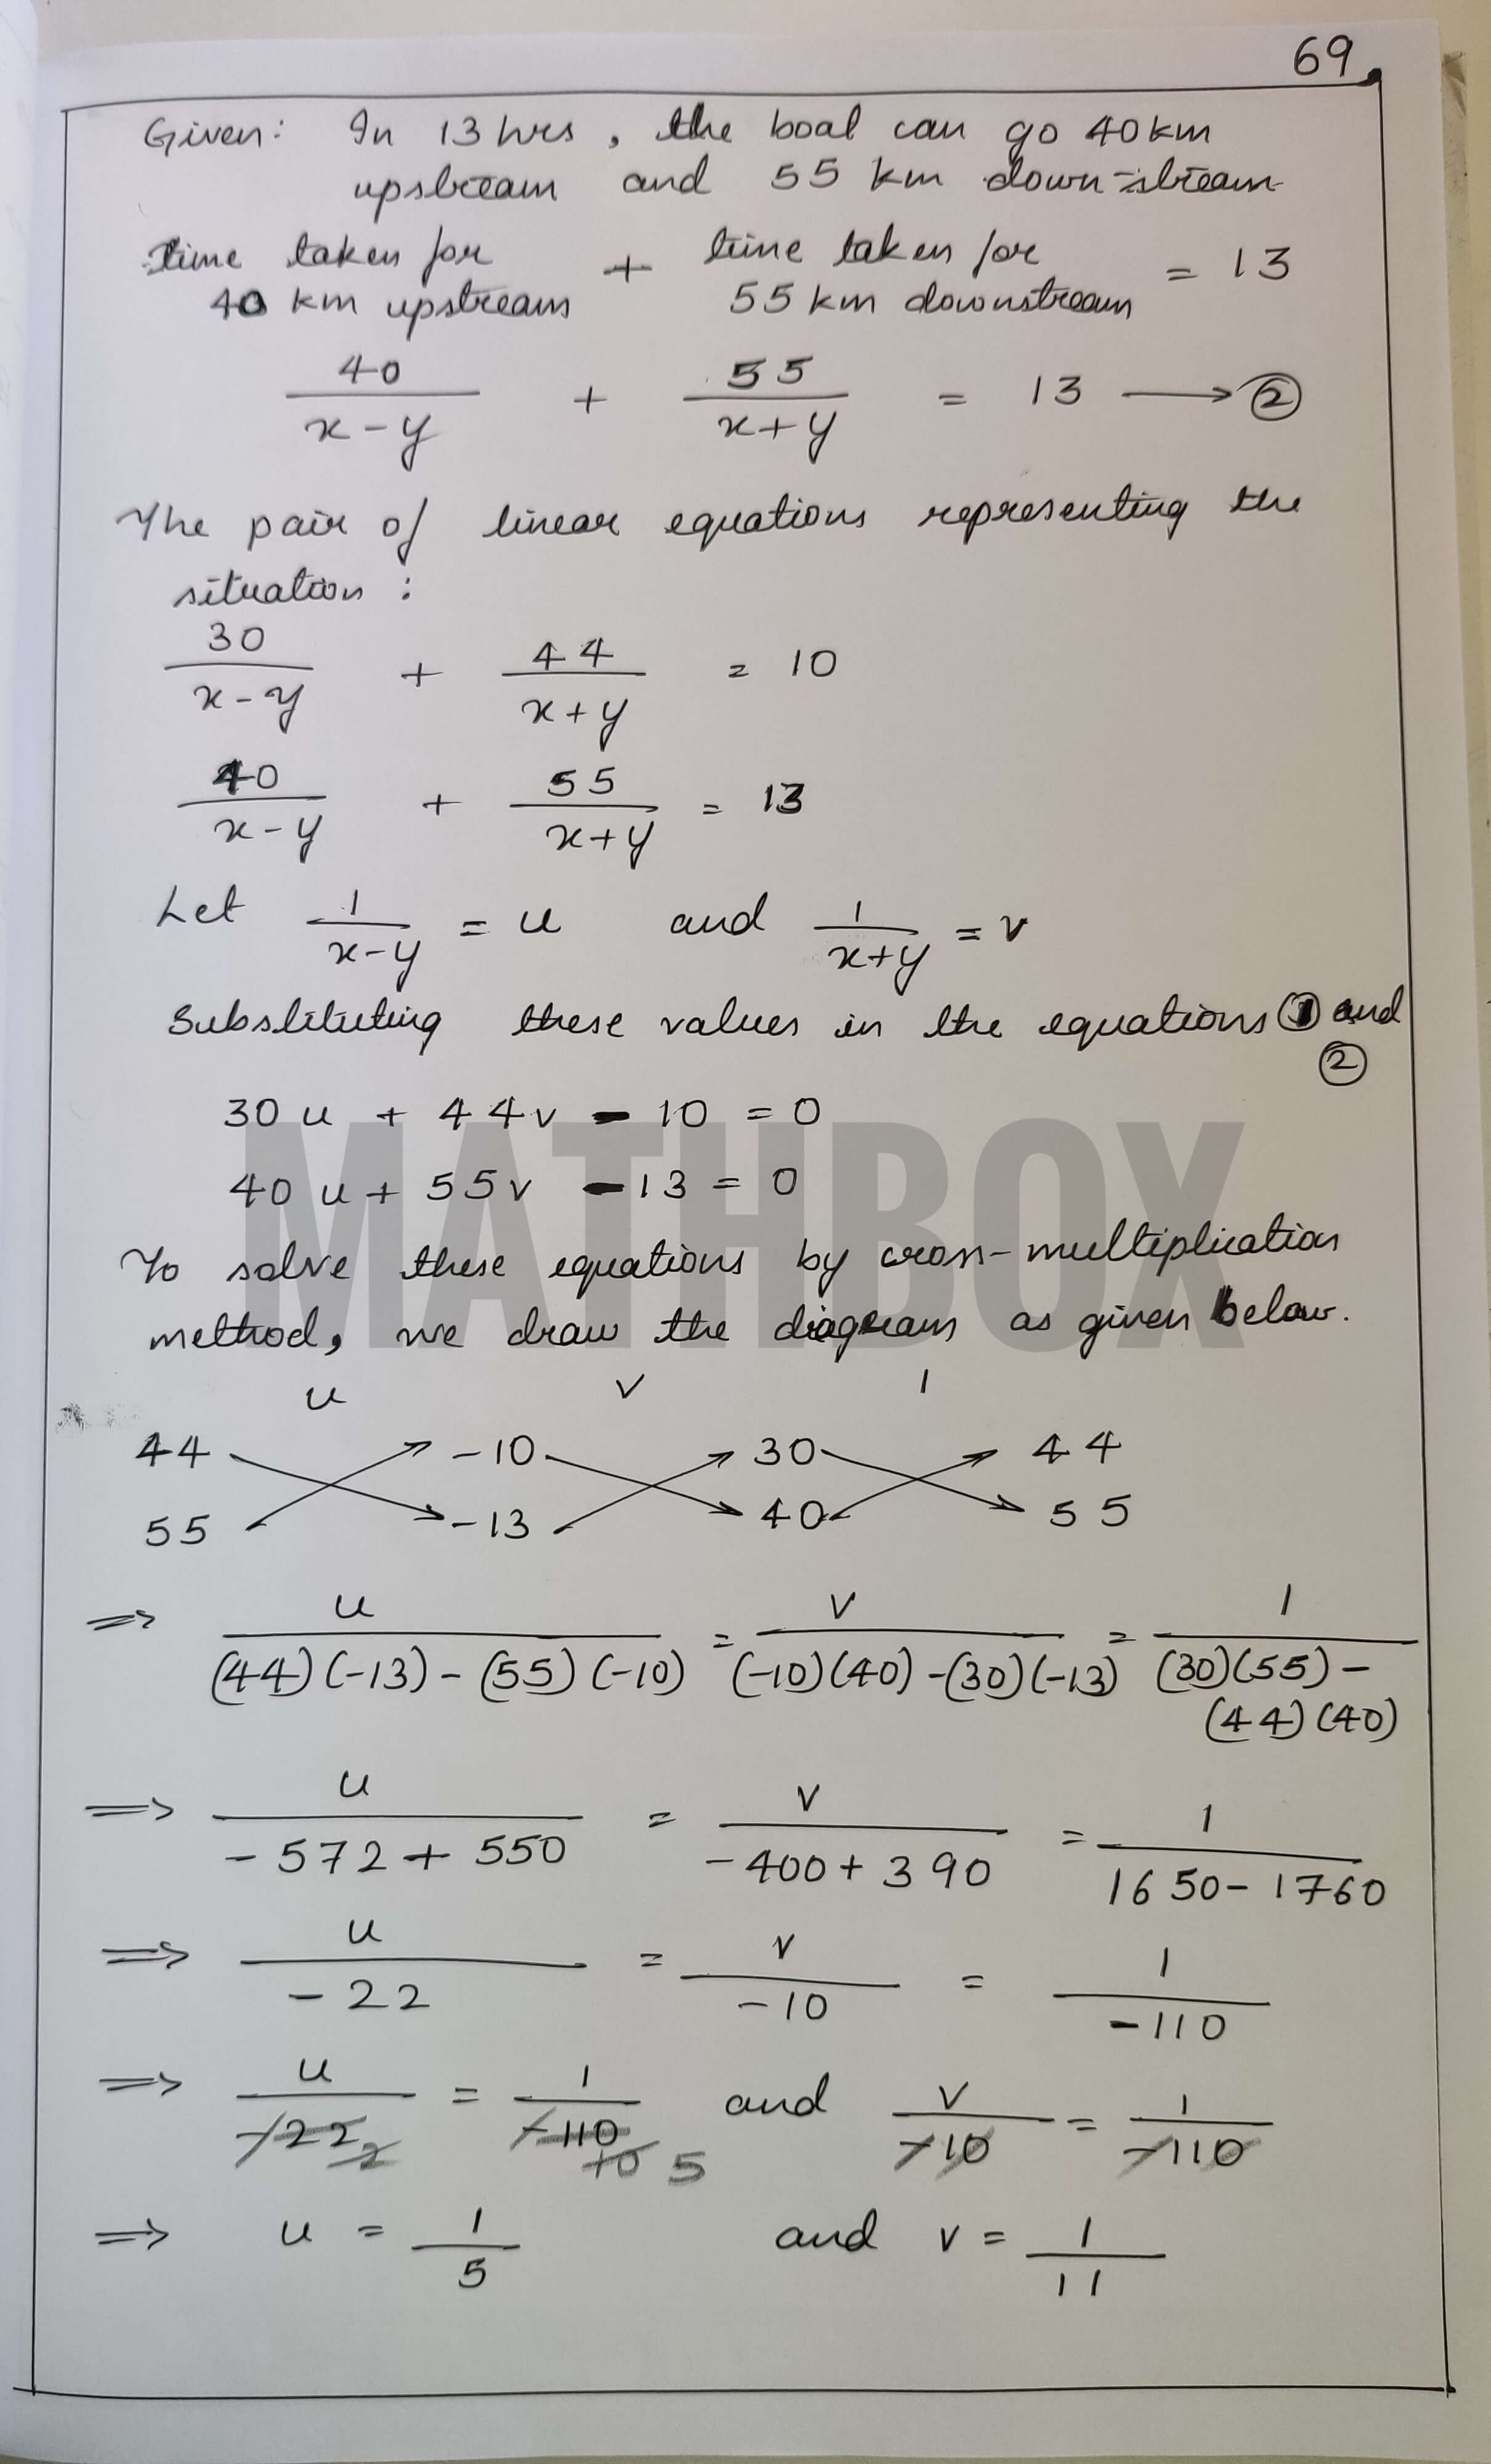 69
Given: In 13 hrs, the boat can go 40 km
upstream and 55 km down-stream
Time taken for + time taken for = 13
40 km upstream 55 km downstream
40/(x-y) + 55/(x+y) = 13 → ②
The pair of linear equations representing the
situation :
30/(x-y) + 44/(x+y) = 10
40/(x-y) + 55/(x+y) = 13
Let 1/(x-y) = u and 1/(x+y) = v
Substituting these values in the equations ① and
②
30 u + 44v - 10 = 0
40 u + 55v - 13 = 0
To solve these equations by cross-multiplication
method, we draw the diagram as given below.
u v 1
44 -10 30 44
55 -13 40 55
⇒ u/((44)(-13) - (55)(-10)) = v/((-10)(40) - (30)(-13)) = 1/((30)(55) - (44)(40))
⇒ u/(-572 + 550) = v/(-400 + 390) = 1/(1650 - 1760)
⇒ u/-22 = v/-10 = 1/-110
⇒ u/-22 2 = 1/-110 10 5 and v/-10 = 1/-110
⇒ u = 1/5 and v = 1/11
MATHBOX